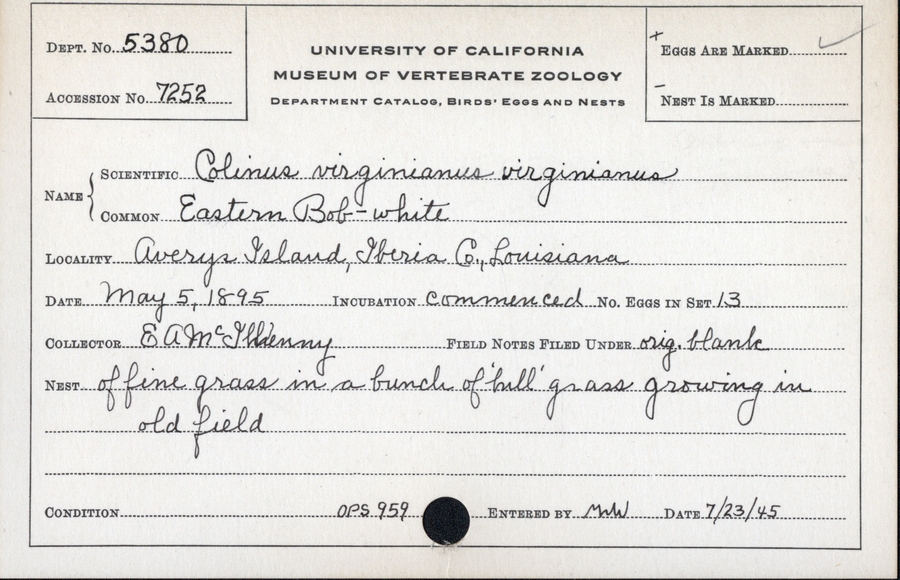 DEPT. No. 5380
ACCESSION No. 7252
UNIVERSITY OF CALIFORNIA
MUSEUM OF VERTEBRATE ZOOLOGY
DEPARTMENT CATALOG, BIRDS' EGGS AND NESTS
+ EGGS ARE MARKED ✓
– NEST IS MARKED
NAME { SCIENTIFIC Colinus virginianus virginianus
COMMON Eastern Bob-white
LOCALITY Averys Island, Iberia Co., Louisiana
DATE May 5, 1895 INCUBATION commenced No. EGGS IN SET 13
COLLECTOR E A McIlhenny FIELD NOTES FILED UNDER orig. blank
NEST of fine grass in a bunch of 'hill' grass growing in
old field
CONDITION OPS 959 ENTERED BY MWW DATE 7/23/45